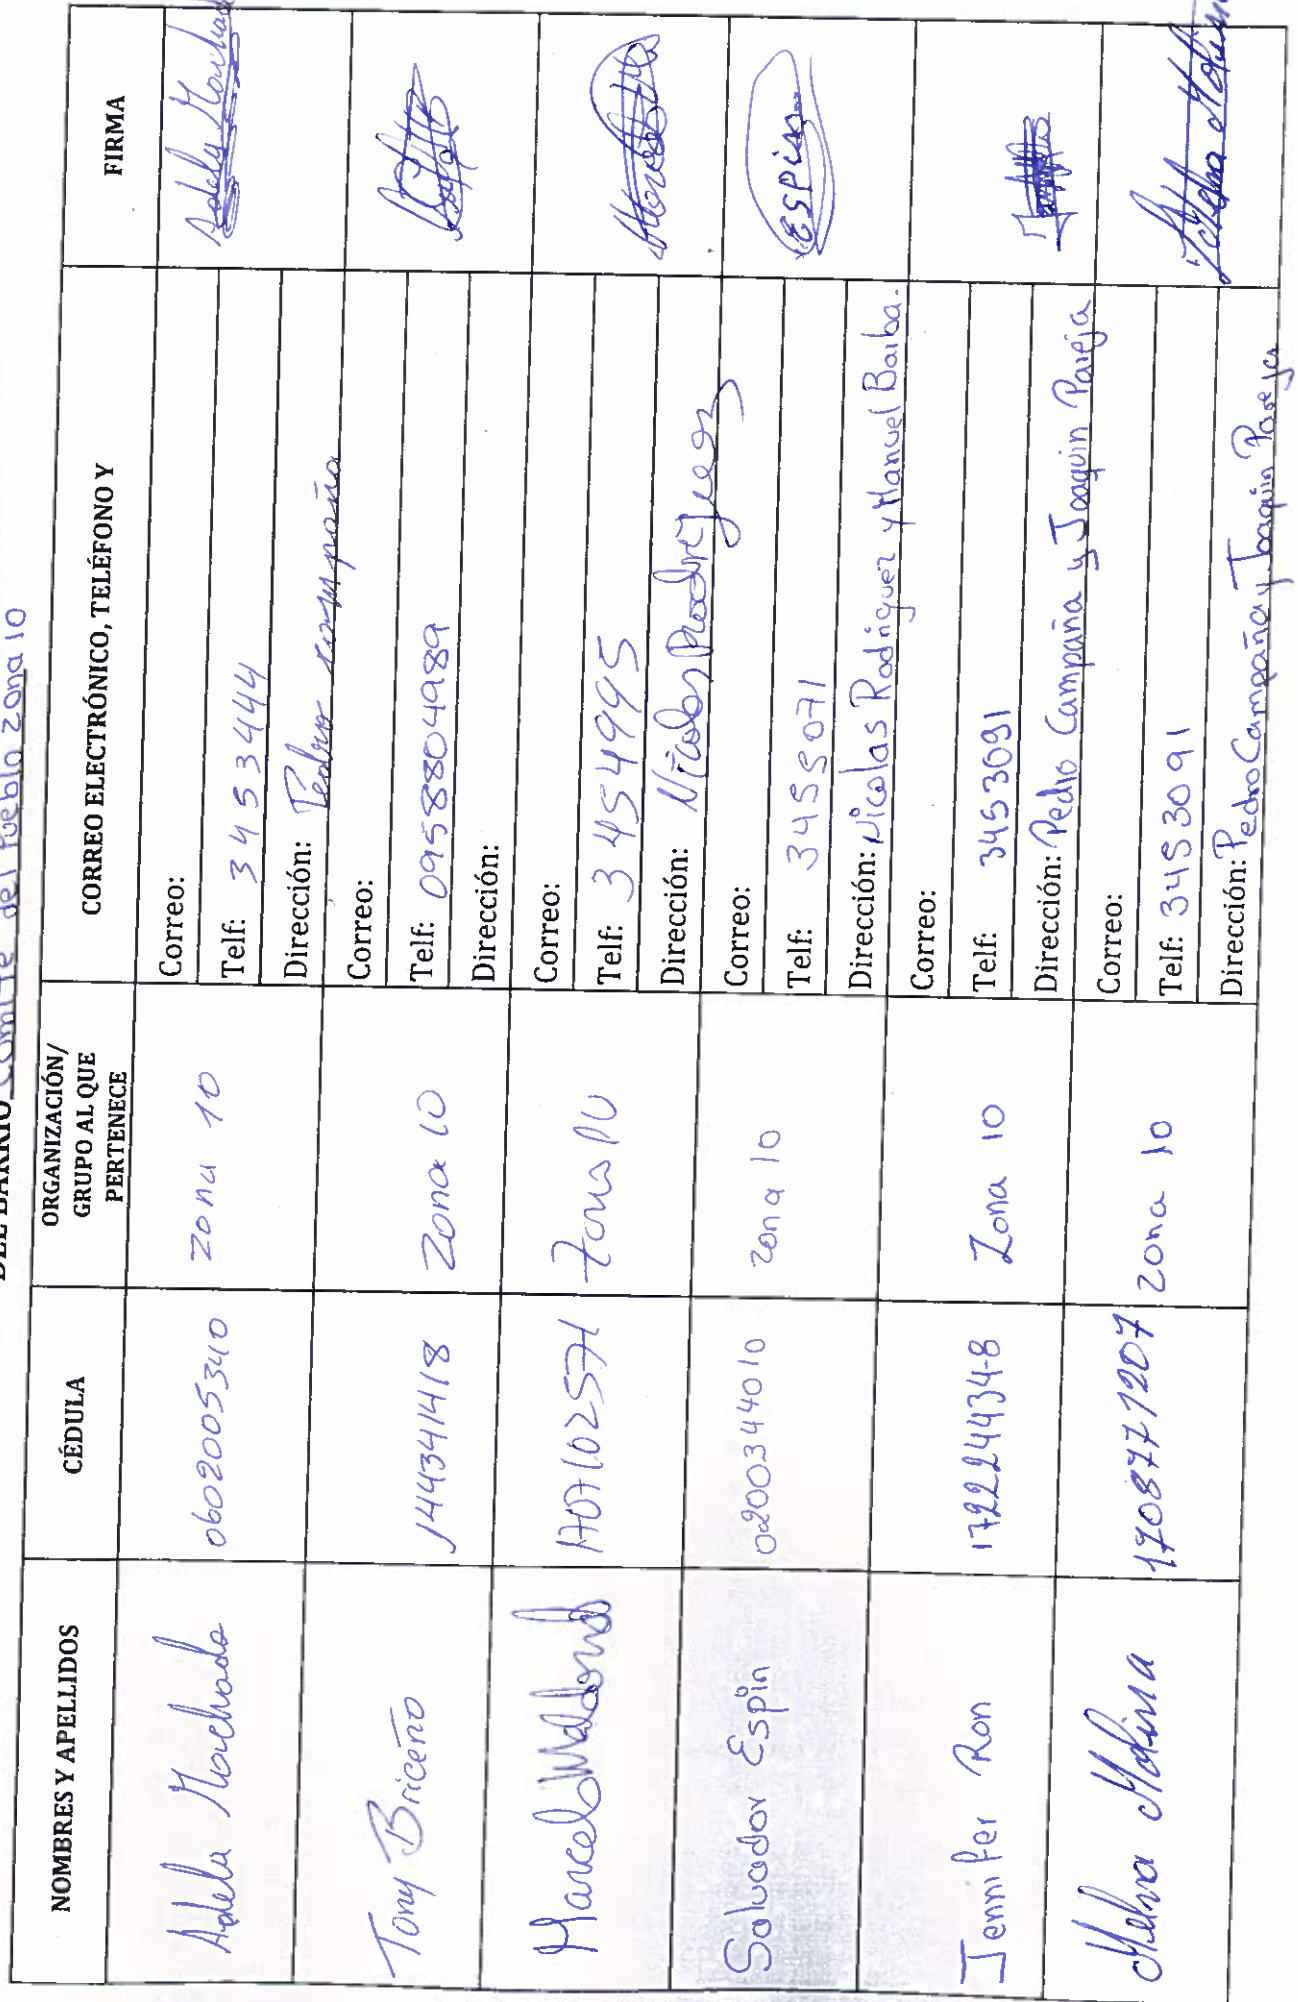 DEL BARRIO Comite del Pueblo zona 10
NOMBRES Y APELLIDOS CÉDULA ORGANIZACIÓN/ GRUPO AL QUE PERTENECE CORREO ELECTRÓNICO, TELÉFONO Y FIRMA
Adela Machado 0602005340 zona 10 Correo: Adela Machado
Telf: 3453444
Dirección: Pedro campaña
Tony Briceño 144341418 Zona 10 Correo:
Telf: 0958804989
Dirección:
Marcelo Maldonado 1707102571 Zona 10 Correo:
Telf: 3454995
Dirección: Nicolas Rodriguez
Salvador Espín 0200344010 zona 10 Correo: ESPin
Telf: 3455071
Dirección: Nicolas Rodriguez y Manuel Barba.
Jennifer Ron 172224434-8 Zona 10 Correo:
Telf: 3453091
Dirección: Pedro Campaña y Joaquin Pareja
Melva Molina 1708771207 zona 10 Correo: Melva Molina
Telf: 3453091
Dirección: Pedro Campaña y Joaquin Pareja